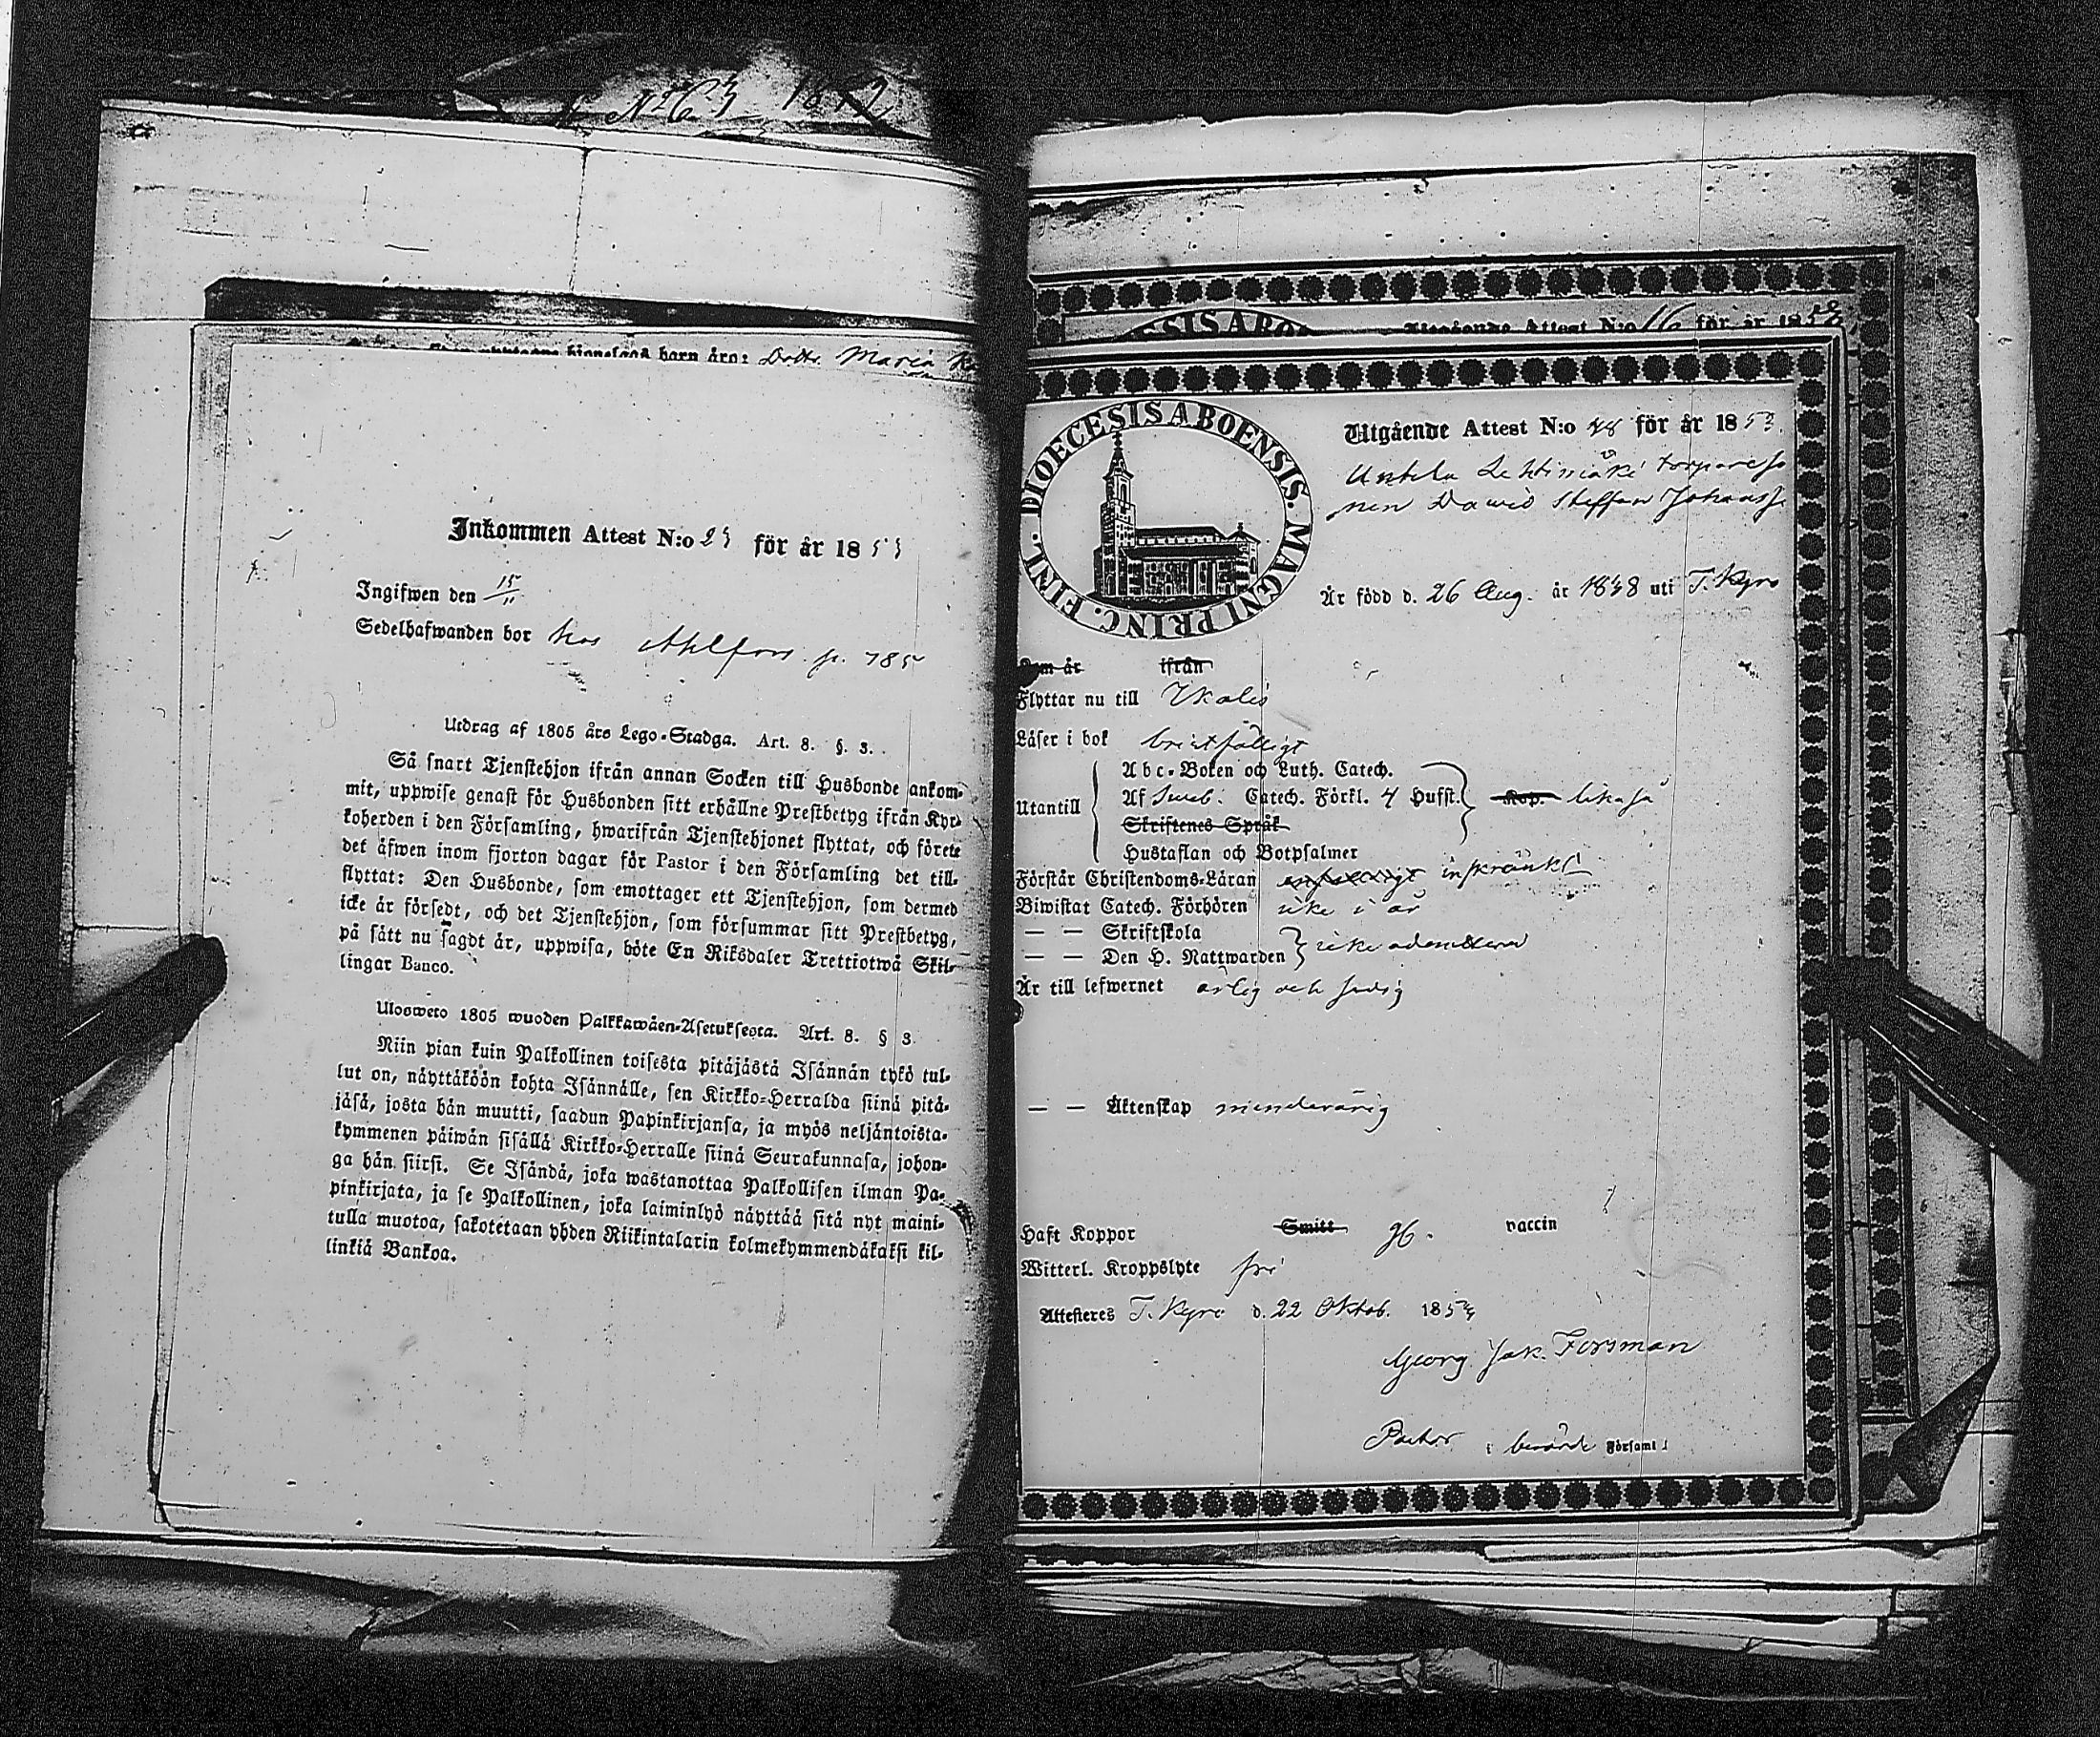 No 63 1852
barn äro: Dottr. Maria
Inkommen Attest N:o 23 för år 1853
Ingifwen den 15/11
Sedelhafwanden bor hos Ahlfors p. 785
Utdrag af 1805 års Lego-Stadga. Art. 8. §. 3.
Så snart Tjenstehjon ifrån annan Socken till Husbonde ankom-
mit, uppwise genast för Husbonden sitt erhållne Prestbetyg ifrån Kyr-
koherden i den Församling, hwarifrån Tjenstehjonet flyttat, och förete
det äfwen inom fjorton dagar för Pastor i den Församling det till-
flyttat: Den Husbonde, som emottager ett Tjenstehjon, som dermed
icke är försedt, och det Tjenstehjon, som försummar sitt Prestbetyg,
på sätt nu sagdt är, uppwisa, böte En Riksdaler Trettiotwå Skil-
lingar Banco.
Ulosweto 1805 wuoden Palkkawäen-Asetuksesta. Art. 8. § 3.
Niin pian kuin Palkollinen toisesta pitäjästä Isännän tykö tul-
lut on, näyttäköön kohta Isännälle, sen Kirkko-Herralda siinä pitä-
jäsä, josta hän muutti, saadun Papinkirjansa, ja myös neljäntoista-
kymmenen päiwän sisällä Kirkko-Herralle siinä Seurakunnasa, johon-
ga hän siirsi. Se Isändä, joka wastanottaa Palkollisen ilman Pa-
pinkirjata, ja se Palkollinen, joka laiminlyö näyttää sitä nyt maini-
tulla muotoa, sakotetaan yhden Riikintalarin kolmekymmendäkaksi kil-
linkiä Bankoa.
SIS ABO
Utgående Attest N:o 16 för år 185
DIOECESIS ABOENSIS. MAGNI PRINC. FINL.
Utgående Attest N:o 48 för år 1853.
Untila Lehtimäki torpareso
nen David Steffan Johanss.
Är född d. 26 Aug. år 1838 uti T. Kyro
Som är ifrån
Flyttar nu till Ikalis
Läser i bok bristfälligt
Abc-Boken och Luth. Catech.
Utantill Af Sweb. Catech. Förkl. 4 Hufst. Rop. likaså
Skriftenes Språk
Hustaflan och Botpsalmer
Förstår Christendoms-Läran inskränkt
Biwistat Catech. Förhören icke i år
— — Skriftskola
— — Den H. Nattwarden icke admitterad
Är till lefwernet ärlig och sedig
— — Äktenskap minderårig
Haft Koppor Smitt gb. vaccin
Witterl. Kroppslyte fri
Attesteres T. Kyro d. 22 Oktob. 1853
Georg Jak. Forsman
Pastor i berörde Församl